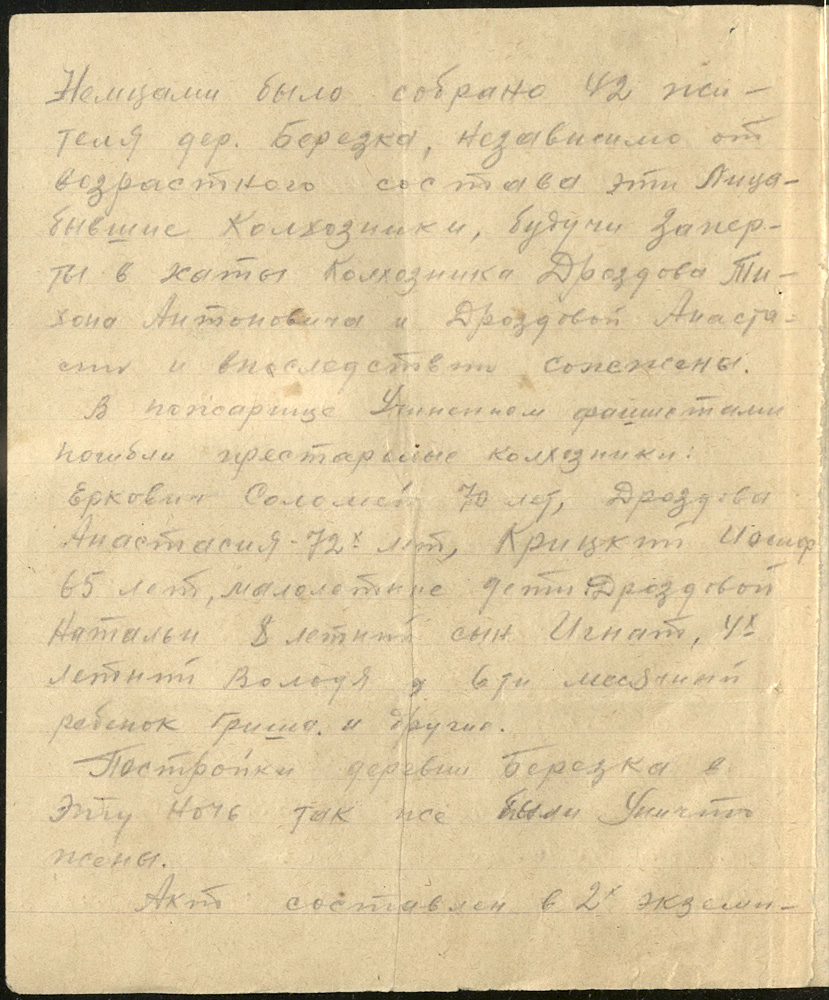 Немцами было собрано 42 жи-
теля дер. Березка, независимо от
возрастного состава эти лица-
бывшие колхозники, будучи запер-
ты в хаты колхозника Дроздова Ти-
хона Антоновича и Дроздовой Анаста-
сии и впоследствии сожжены.
В пожарище учиненном фашистами
погибли престарелые колхозники:
Еркович 70 лет, Дроздова
Анастасия-72х лет, Крицкий Иосиф
65 лет, малолетние дети: Дроздовой
Натальи 8 летний сын Игнат, 4х
летний Володя 6ти месячный
ребенок Гриша. и другие.
Постройки деревни Березка в
эту ночь так же были уничто
жены.
Акт составлен в 2х экземп-